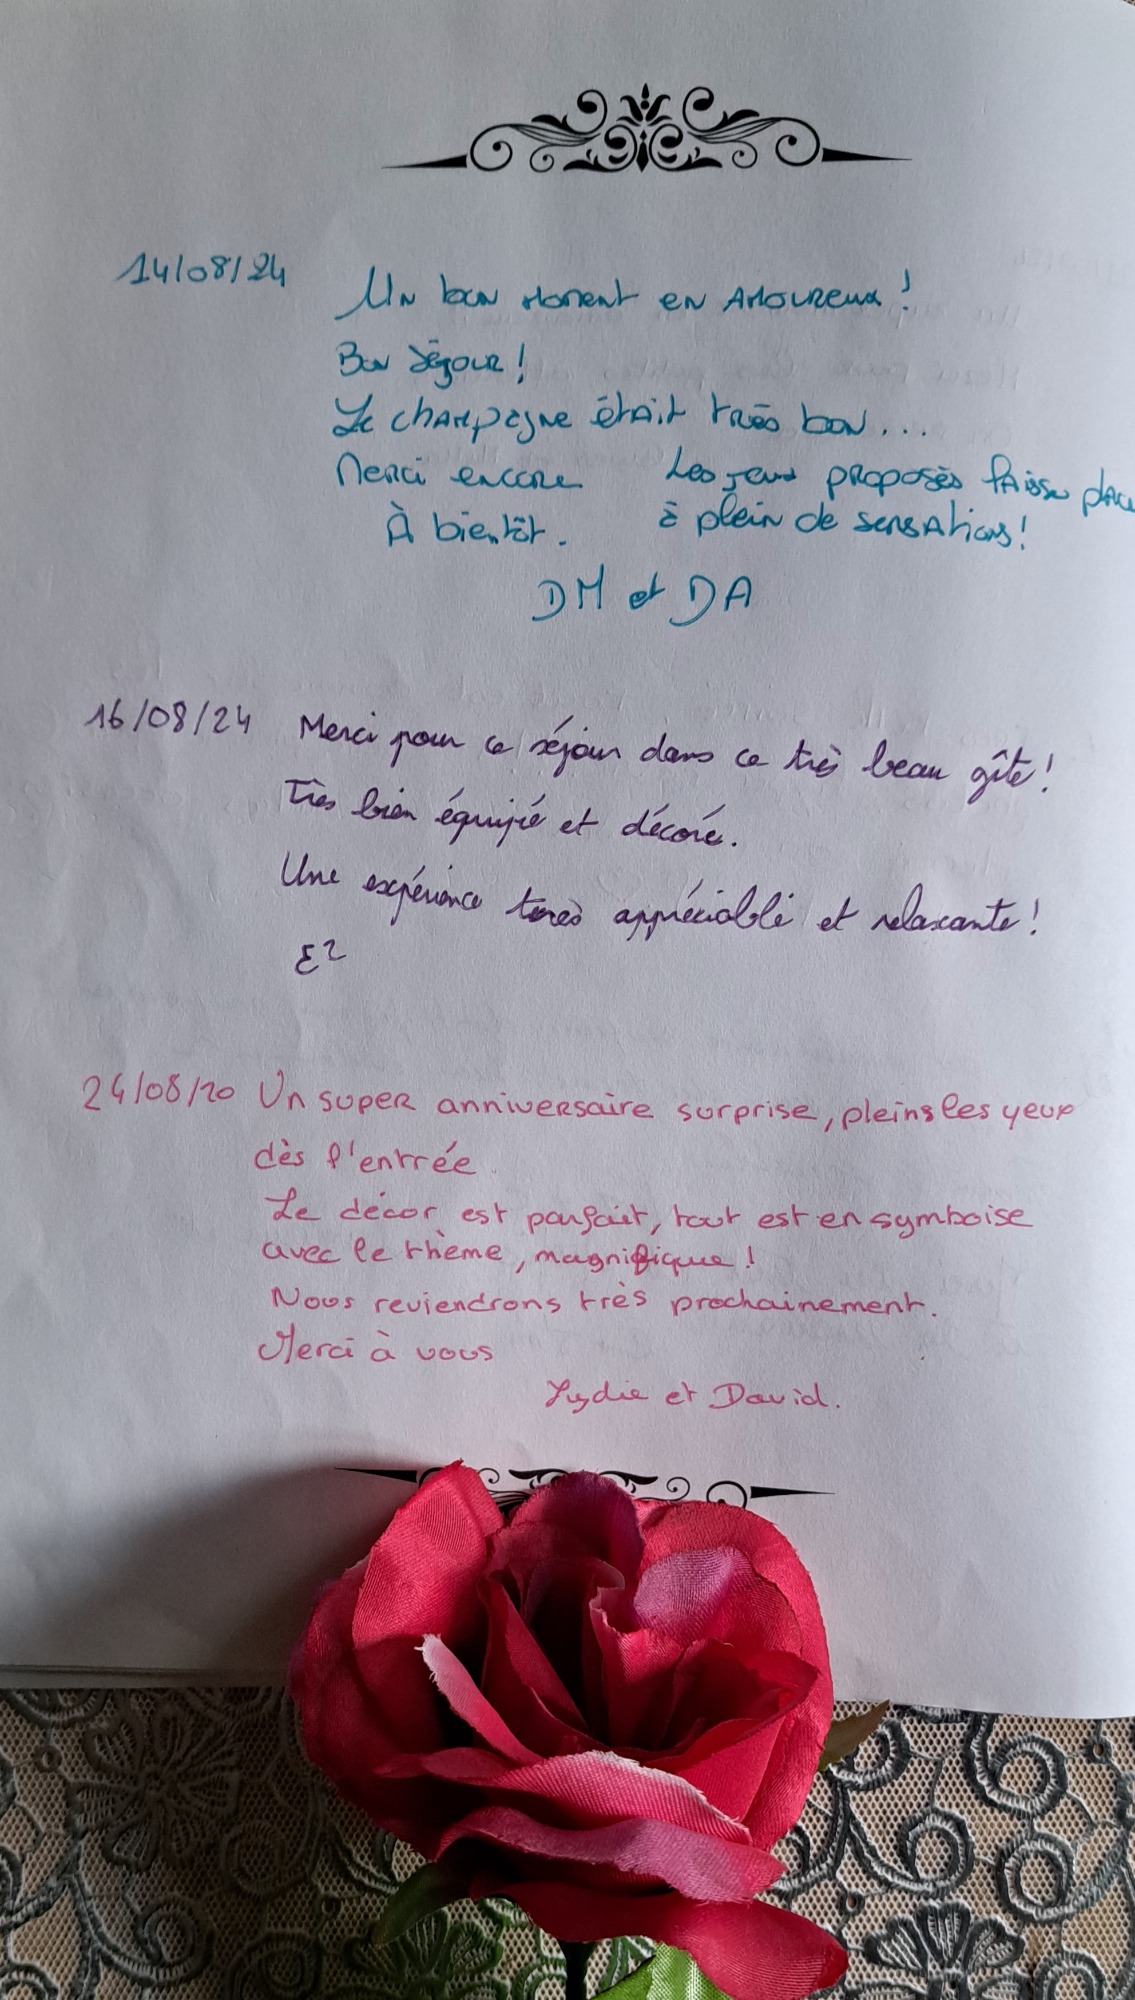 14/08/24 Un bon moment en amoureux !
Bon séjour !
Le champagne était très bon...
Merci encore Les jeux proposés laisse place
À bientôt. à plein de sensations !
DM et DA
16/08/24 Merci pour ce séjour dans ce très beau gîte !
Très bien équipé et décoré.
Une expérience très appréciable et relaxante !
E2
24/08/20 Un super anniversaire surprise, pleins les yeux
dès l'entrée.
Le décor est parfait, tout est en symboise
avec le thème, magnifique !
Nous reviendrons très prochainement.
Merci à vous
Lydie et David.